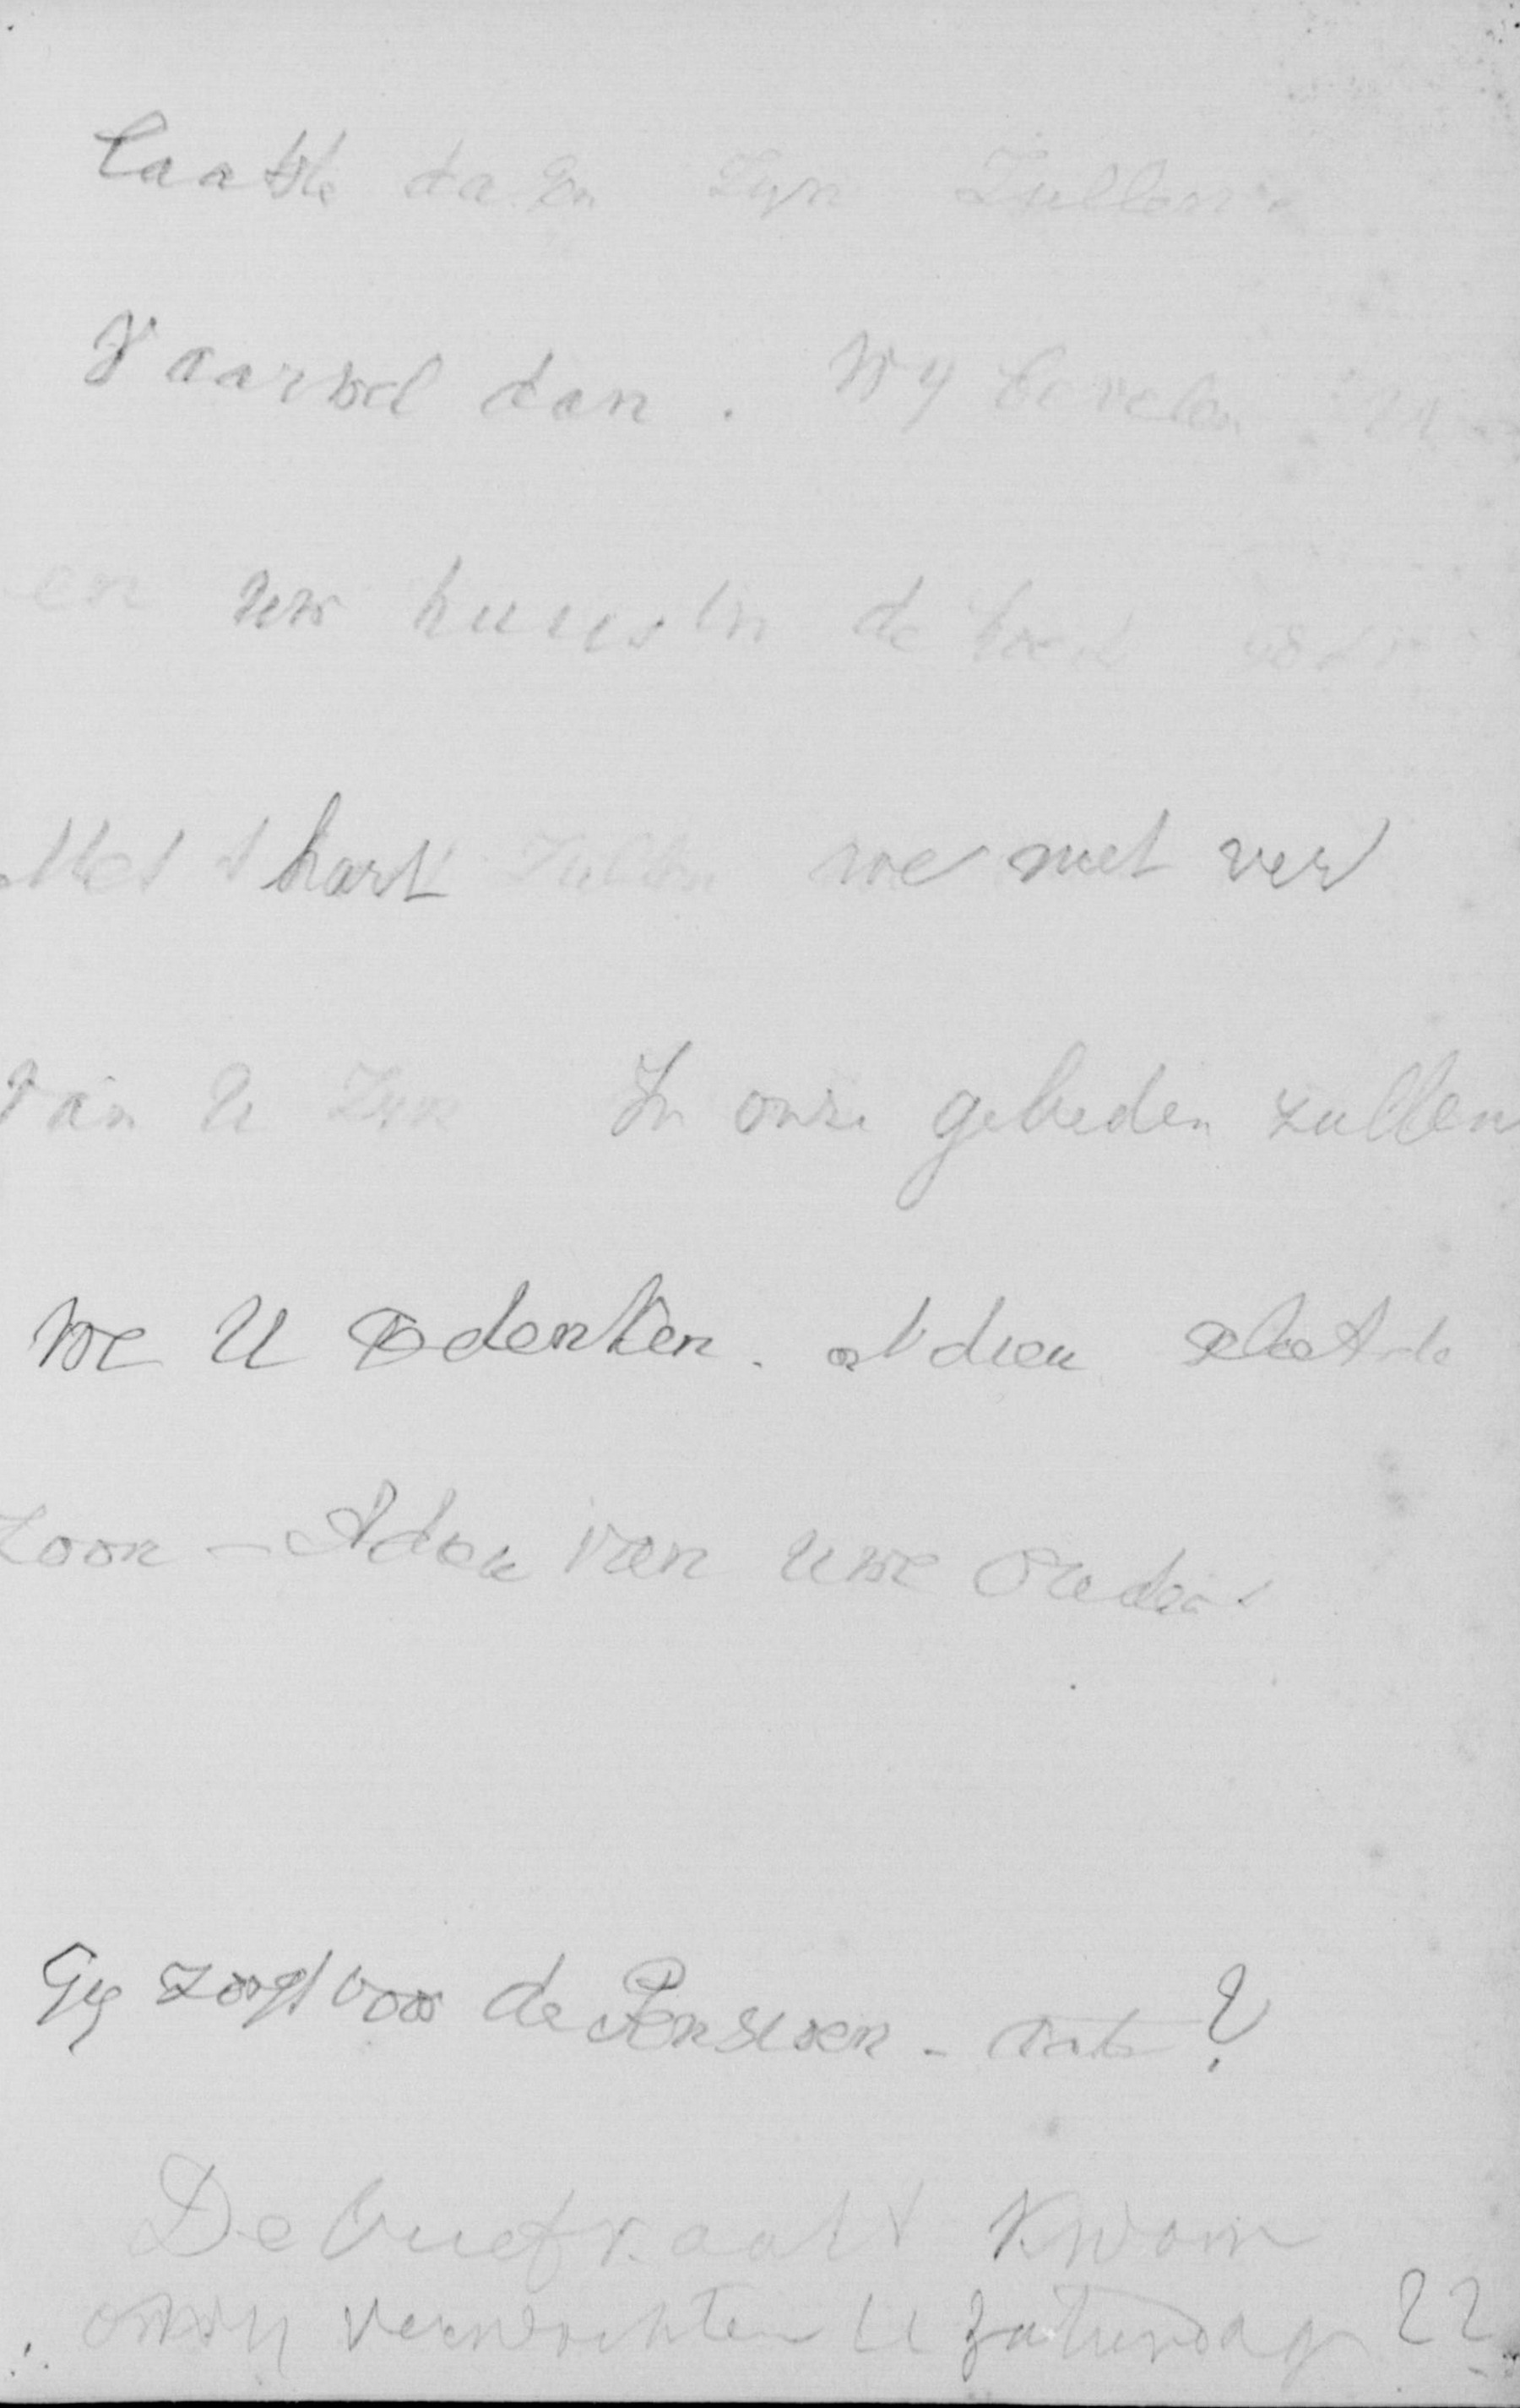 laatste dagen zyn zullen
Vaarwel dan. Wy bevelen
en uw huis in de
Met 't hart zullen we niet ver
van U zyn In onze gebeden zullen
we U gedenken.
zoon - Adieu van uwe ouders
Gy zorgt voor de Pensioen - ?
De briefkaart kwam
verwachten U zaturdag 22